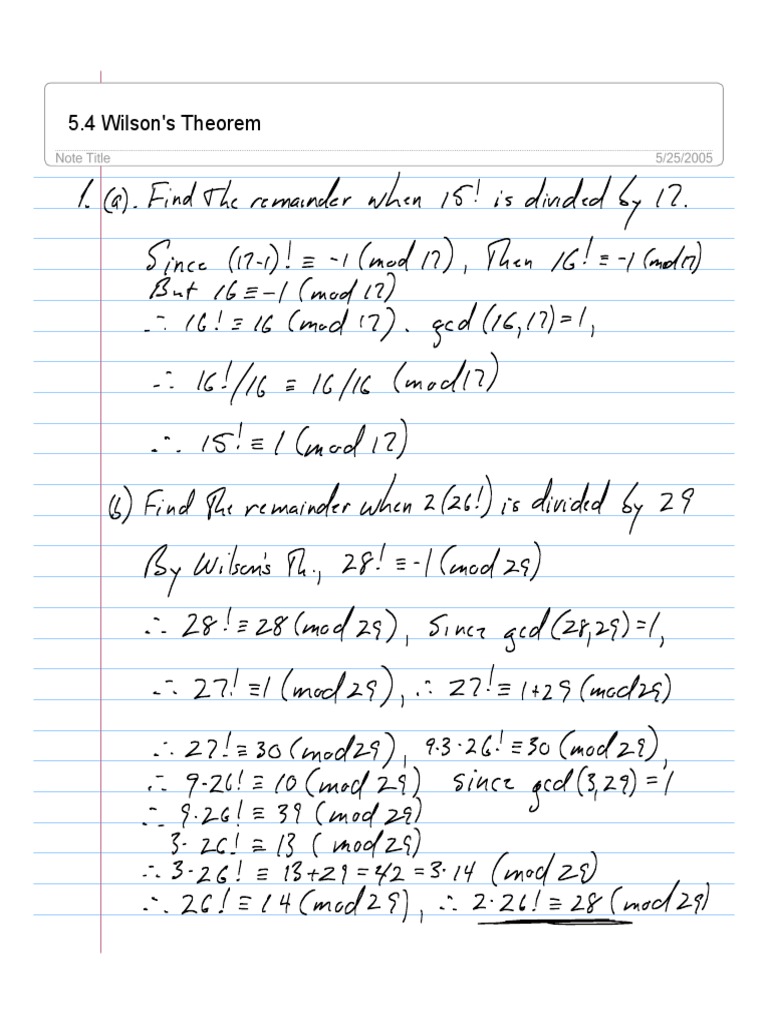 5.4 Wilson's Theorem
Note Title 5/25/2005
1. (a). Find the remainder when 15! is divided by 17.
Since (17-1)! ≡ -1 (mod 17), Then 16! ≡ -1 (mod 17)
But 16 ≡ -1 (mod 17)
∴ 16! ≡ 16 (mod 17). gcd(16,17)=1,
∴ 16!/16 ≡ 16/16 (mod 17)
∴ 15! ≡ 1 (mod 17)
(b) Find The remainder when 2(26!) is divided by 29
By Wilson's Th., 28! ≡ -1 (mod 29)
∴ 28! ≡ 28 (mod 29), since gcd(28,29)=1,
∴ 27! ≡ 1 (mod 29), ∴ 27! ≡ 1+29 (mod 29)
∴ 27! ≡ 30 (mod 29), 9·3·26! ≡ 30 (mod 29),
∴ 9·26! ≡ 10 (mod 29) since gcd(3,29)=1
∴ 9·26! ≡ 39 (mod 29)
3·26! ≡ 13 (mod 29)
∴ 3·26! ≡ 13+29 = 42 = 3·14 (mod 29)
∴ 26! ≡ 14 (mod 29), ∴ 2·26! ≡ 28 (mod 29)